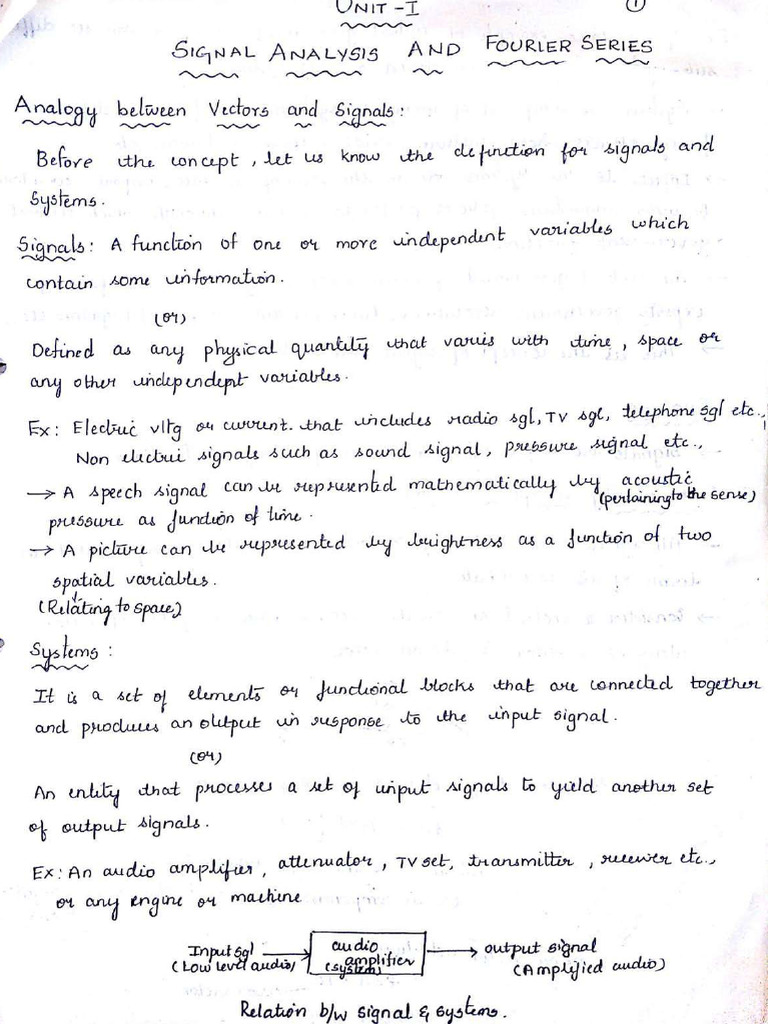 UNIT-I
1
SIGNAL ANALYSIS AND FOURIER SERIES
Analogy between Vectors and Signals:
Before the concept, let us know the definition for signals and
Systems.
Signals: A function of one or more independent variables which
contain some information.
(or)
Defined as any physical quantity that varis with time, space or
any other independent variables.
Ex: Electric vltg or current. that includes radio sgl, TV sgl, telephone sgl etc.,
Non electric signals such as sound signal, pressure signal etc.,
→ A speech signal can be represented mathematically by acoustic
(pertaining to the sense)
pressure as function of time.
→ A picture can be represented by brightness as a function of two
spatial variables.
(Relating to space)
Systems:
It is a set of elements or functional blocks that are connected together
and produces an output in response to the input signal.
(or)
An entity that processes a set of input signals to yield another set
of output signals.
Ex: An audio amplifier, attenuator, TV set, transmitter, receiver etc.,
or any engine or machine
Input sgl → audio → output signal
(Low level audio) amplifier (Amplified audio)
(system)
Relation b/w signal & systems.